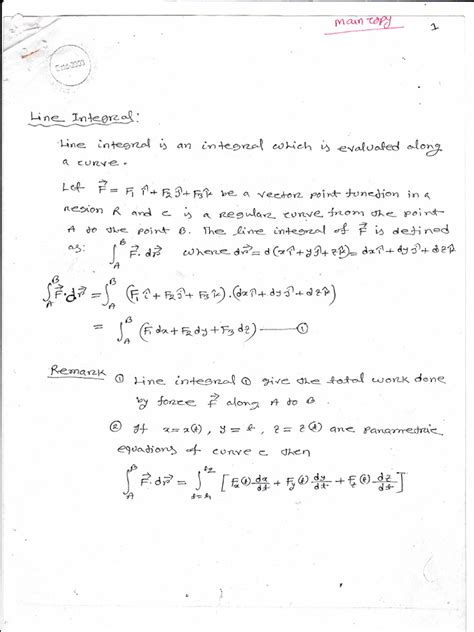 main copy
1
Line Integral:
Line integral is an integral which is evaluated along
a curve.
Let F⃗ = F₁ î + F₂ ĵ + F₃ k̂ be a vector point function in a
region R and c is a regular curve from the point
A to the point B. The line integral of F⃗ is defined
as: ∫_A^B F⃗. dr⃗ where dr⃗ = d(xî + yĵ + zk̂) = dxî + dyĵ + dzk̂
∫_A^B F⃗. dr⃗ = ∫_A^B (F₁ î + F₂ ĵ + F₃ k̂).(dxî + dyĵ + dzk̂)
= ∫_A^B (F₁ dx + F₂ dy + F₃ dz) —— ①
Remark ① Line integral ① give the total work done
by force F⃗ along A to B.
② If x = x(t), y = t, z = z(t) are parametric
equations of curve c then
∫_A^B F⃗. dr⃗ = ∫_{t=t₁}^{t₂} [F_x(t) dx/dt + F_y(t) . dy/dt + F_z(t) . dz/dt]